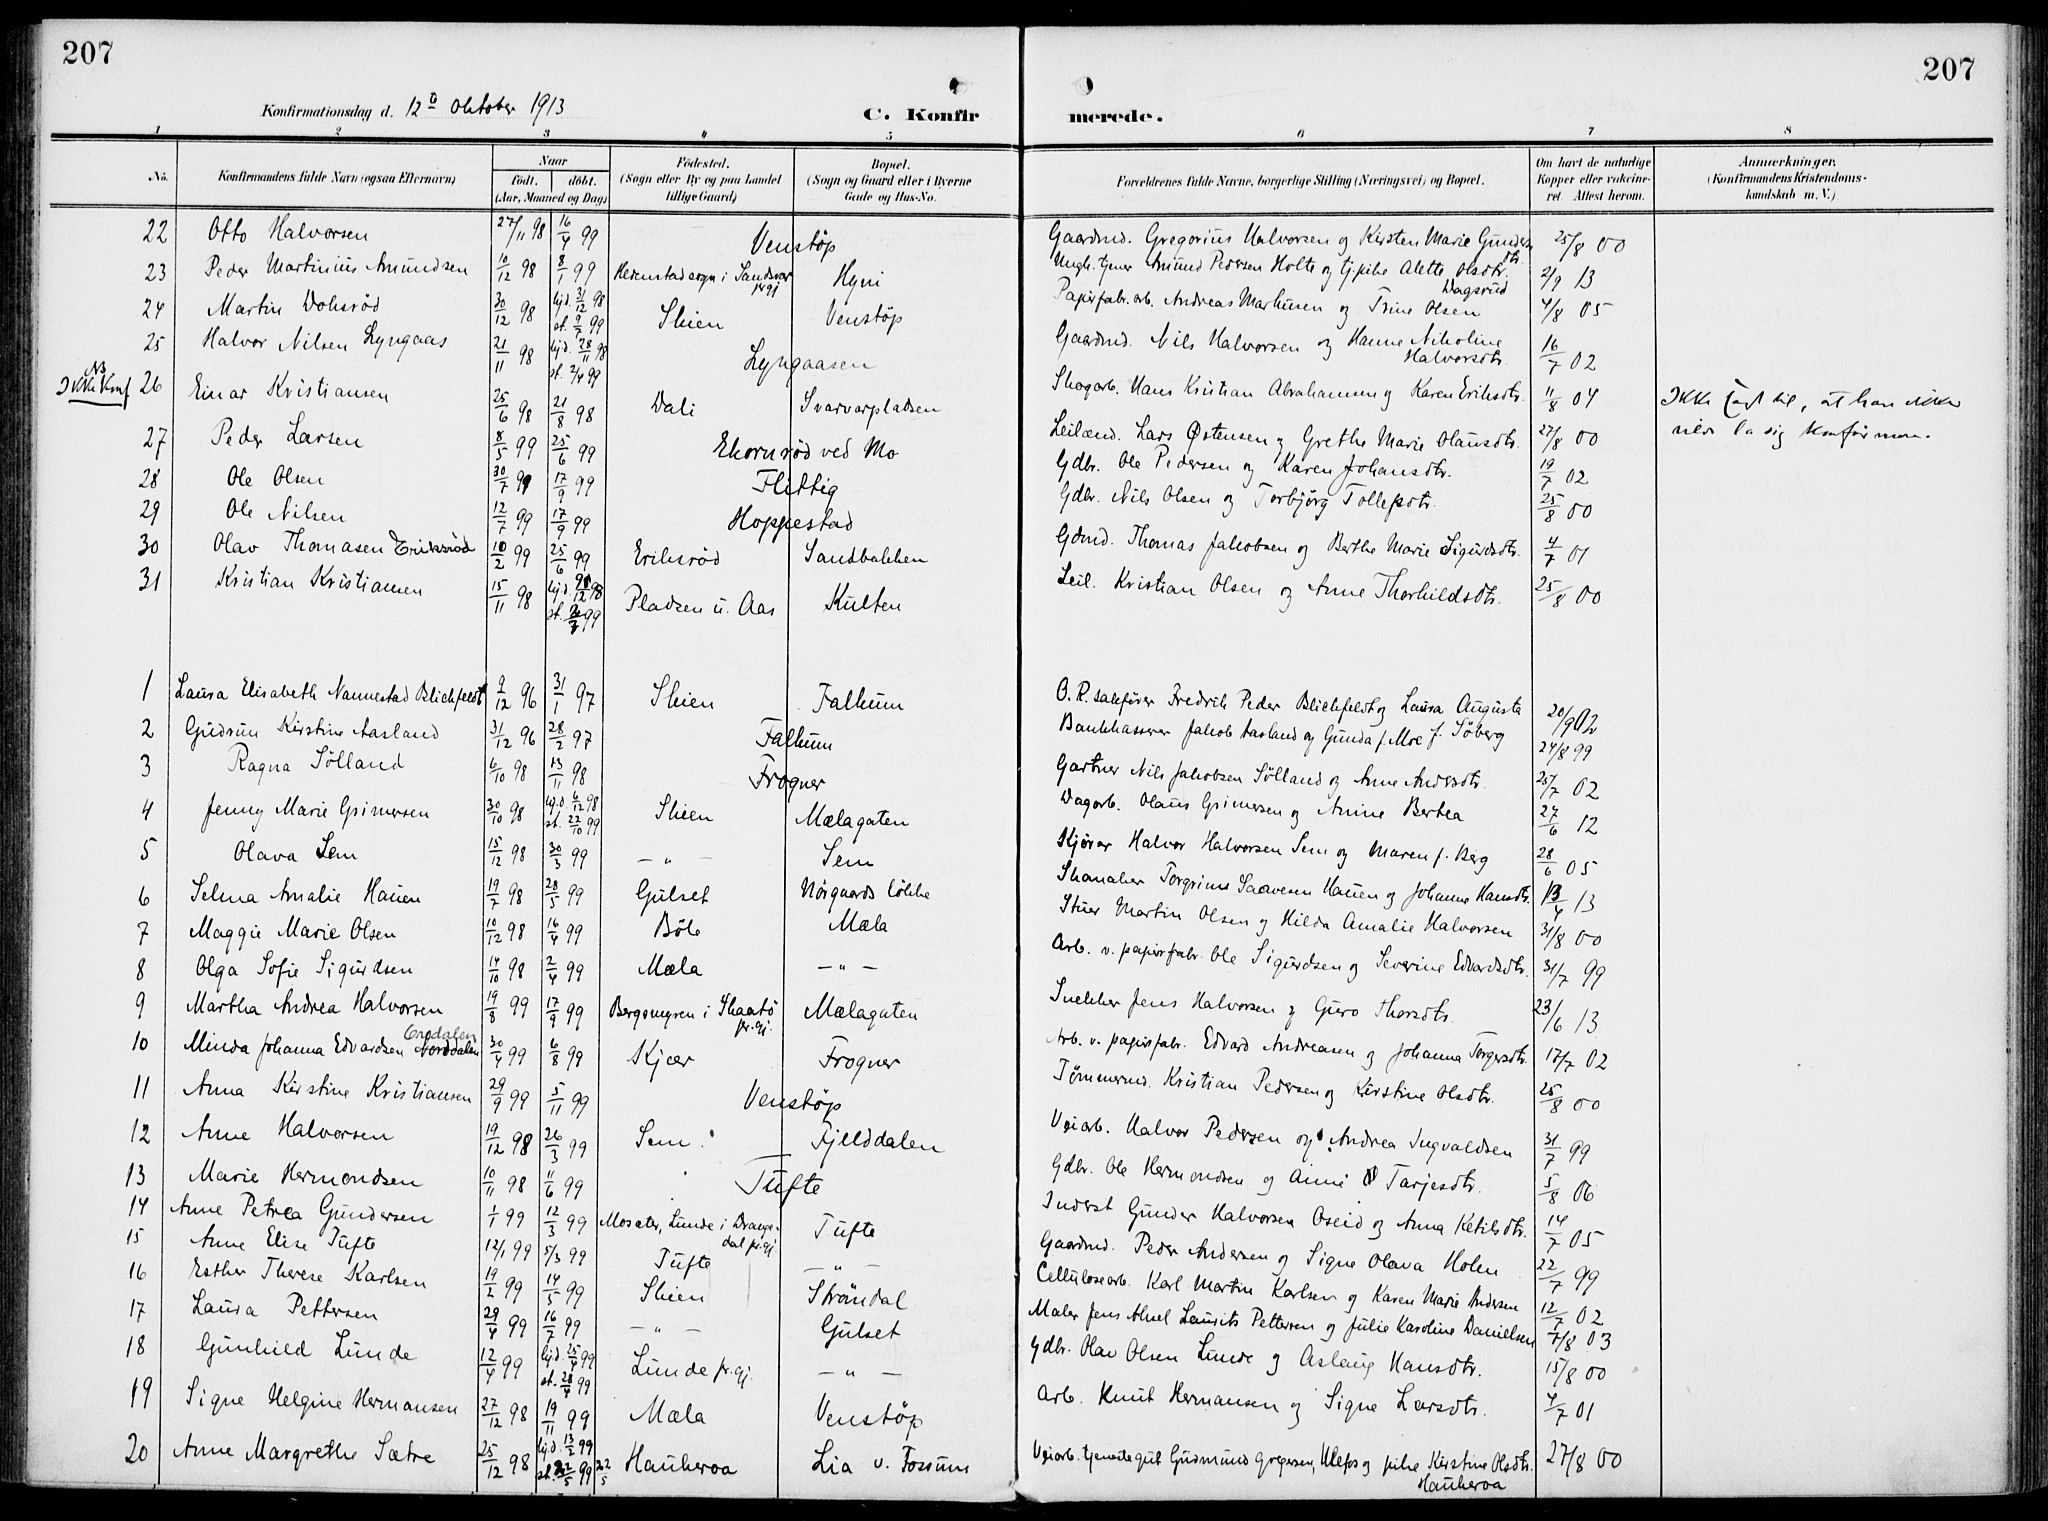 207
207
Konfirmationsdag d. 12te Oktober 1913
C. Konfir
merede.
1 2 3 4 5 6 7 8
No.
Konfirmandens fulde Navn (ogsaa Efternavn)
Naar
født. døbt.
(Aar, Maaned og Dag)
Fødested.
(Sogn eller By og paa Landet
tillige Gaard)
Bopæl.
(Sogn og Gaard eller i Byerne
Gade og Hus-No.
Forældrenes fulde Navne, borgerlige Stilling (Næringsvei) og Bopæl.
Om havt de naturlige
Kopper eller vakcine-
ret Attest herom.
Anmærkninger.
(Konfirmandens Kristendoms-
kundskab m. V.)
22 Otto Halvorsen 27/11 98 16/4 99 Venstøp Gaardmd. Gregorius Halvorsen og Kirsten Marie Gundersdtr. 25/8 00
23 Peder Martinius Amundsen 10/12 98 8/1 99 Hedenstad sogn i Sandsvær Hyni Ungk. tjener Amund Pedersen Holte og tj.pike Alette Olsdtr. Dagsrud 2/9 13
24 Martin Dolusrød 30/12 98 hjd. 31/12 98 st. 9/7 99 Skien Venstøp Papirfabr.arb. Andreas Markusen og Trine Olsen 4/8 05
25 Halvor Nilsen Lyngaas 21/11 98 hjd. 28/11 98 st. 2/4 99 Lyngaasen Gaardmd. Nils Halvorsen og Hanne Nikoline Halvorsdtr. 16/7 02
NB Ikke Konf 26 Einar Kristiansen 25/6 98 21/8 98 Dali Svarvarpladsen Skogarb. Hans Kristian Abrahamsen og Karen Eriksdtr. 11/8 04 Ikke sagt til, at han ikke
vilde la sig konfirmere.
27 Peder Larsen 8/5 99 25/6 99 Ekornrød ved Mo Leilænd. Lars Østensen og Grethe Marie Olausdtr. 27/8 00
28 Ole Olsen 30/7 99 17/9 99 Flittig Gdbr. Ole Pedersen og Karen Johansdtr. 19/7 02
29 Ole Nilsen 12/7 99 17/9 99 Hoppestad Gdbr. Nils Olsen og Torbjørg Tollefsdtr. 25/8 00
30 Olav Thomasen Eriksrød 10/2 99 25/6 99 Eriksrød Sandbakken Gdmd. Thomas Jakobsen og Berthe Marie Sigurdsdtr. 4/7 01
31 Kristian Kristiansen 15/11 98 hjd. 12 98 st. 7 99 Pladsen u. Aas Kulten Leil. Kristian Olsen og Anne Thorkildsdtr. 25/8 00
1 Laura Elisabeth Nannestad Blichfeldt 9/12 96 31/1 97 Skien Falkum O.R. sakfører Fredrik Peder Blichfeldt og Laura Augusta f. Söberg 20/9 02
2 Gudrun Kirstine Aasland 31/12 96 28/2 97 Falkum Bankkasserer Jakob Aasland og Gunda f. Moe 24/8 99
3 Ragna Sölland 6/10 98 13/11 98 Frogner Gartner Nils Jakobsen Sölland og Anne Andersdtr. 25/7 02
4 Jenny Marie Grimersen 30/10 98 hjd. 6/12 98 st. 22/10 99 Skien Mælagaten Dagarb. Olaus Grimersen og Anine Bertea 27/6 12
5 Olava Sem 15/12 98 30/3 99 — " — Sem Kjører Halvor Halvorsen Sem og Maren f. Berg 28/6 05
6 Selma Amalie Hauen 19/7 98 28/5 99 Gulset Nörgaards lökke Skomaker Torgrim Saavesen Hauen og Johanne Hansdtr. 13/4 13
7 Maggie Marie Olsen 10/12 98 16/4 99 Bøle Mæla Stuer Martin Olsen og Hilda Amalie Halvorsen 31/8 00
8 Olga Sofie Sigurdsen 14/10 98 2/4 99 Mæla — " — Arb. v. papirfabr. Ole Sigurdsen og Severine Edvardsdtr. 31/7 99
9 Martha Andrea Halvorsen 19/8 99 17/9 99 Bergsmyren i Skaatö pr.gj. Mælagaten Snekker Jens Halvorsen og Guro Thorsdtr. 23/6 13
10 Minda Johanna Edvardsen Norddalen 30/4 99 6/8 99 Skjær Frogner Arb. v. papirfabr. Edvard Andreasen og Johanna Torgersdtr. 17/7 02
11 Anna Kirstine Kristiansen 29/9 99 5/11 99 Venstøp Tømmermd. Kristian Pedersen og Kirstine Olsdtr. 25/8 00
12 Anne Halvorsen 19/12 98 26/3 99 Sem Fjelldalen Veiarb. Halvor Pedersen og Andrea Ingvaldsen 31/7 99
13 Marie Hermondsen 10/11 98 11/6 99 Tufte Gdbr. Ole Hermondsen og Anne Tarjesdtr. 5/8 06
14 Anne Petrea Gundersen 1/1 99 12/3 99 Mosater, Lunde i Drangedal pr.gj. Tufte Inderst Gunder Halvorsen Oseid og Anna Ketilsdtr. 14/7 05
15 Anne Elise Tufte 12/1 99 5/3 99 Tufte — " — Gaardmd. Peder Andersen og Signe Olava Holen 22/7 99
16 Esther Therese Karlsen 19/2 99 14/5 99 Skien Strömdal Cellulosearb. Karl Martin Karlsen og Karen Marie Andersen 12/7 02
17 Laura Pettersen 29/4 99 16/7 99 — " — Gulset Maler Jens Axel Laurits Pettersen og Julie Karoline Danielsen 7/8 03
18 Gunhild Lunde 12/4 99 hjd. 25/4 99 st. 28/4 99 Lunde pr.gj. — " — Gdbr. Olav Olsen Lunde og Aslaug Hansdtr. 15/8 00
19 Signe Helgine Hermansen 27/12 98 19/11 99 Mæla Venstøp Arb. Knut Hermansen og Signe Larsdtr. 4/7 01
20 Anne Margrethe Sætre 25/12 98 hjd. 13/2 99 st. 22/5 99 22/5 Haukeroa Lia v. Fossum Veiarb. tjenestegut Gudmund Gregersen, Ulefos og pike Kirstine Olsdtr. Haukeroa 27/8 00